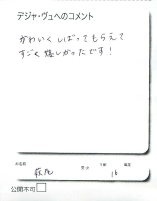 デジャ・ヴュへのコメント
かわいく しばってもらえて
すごく 嬉しかったです!
お名前
男・女
年齢
16
公開不可